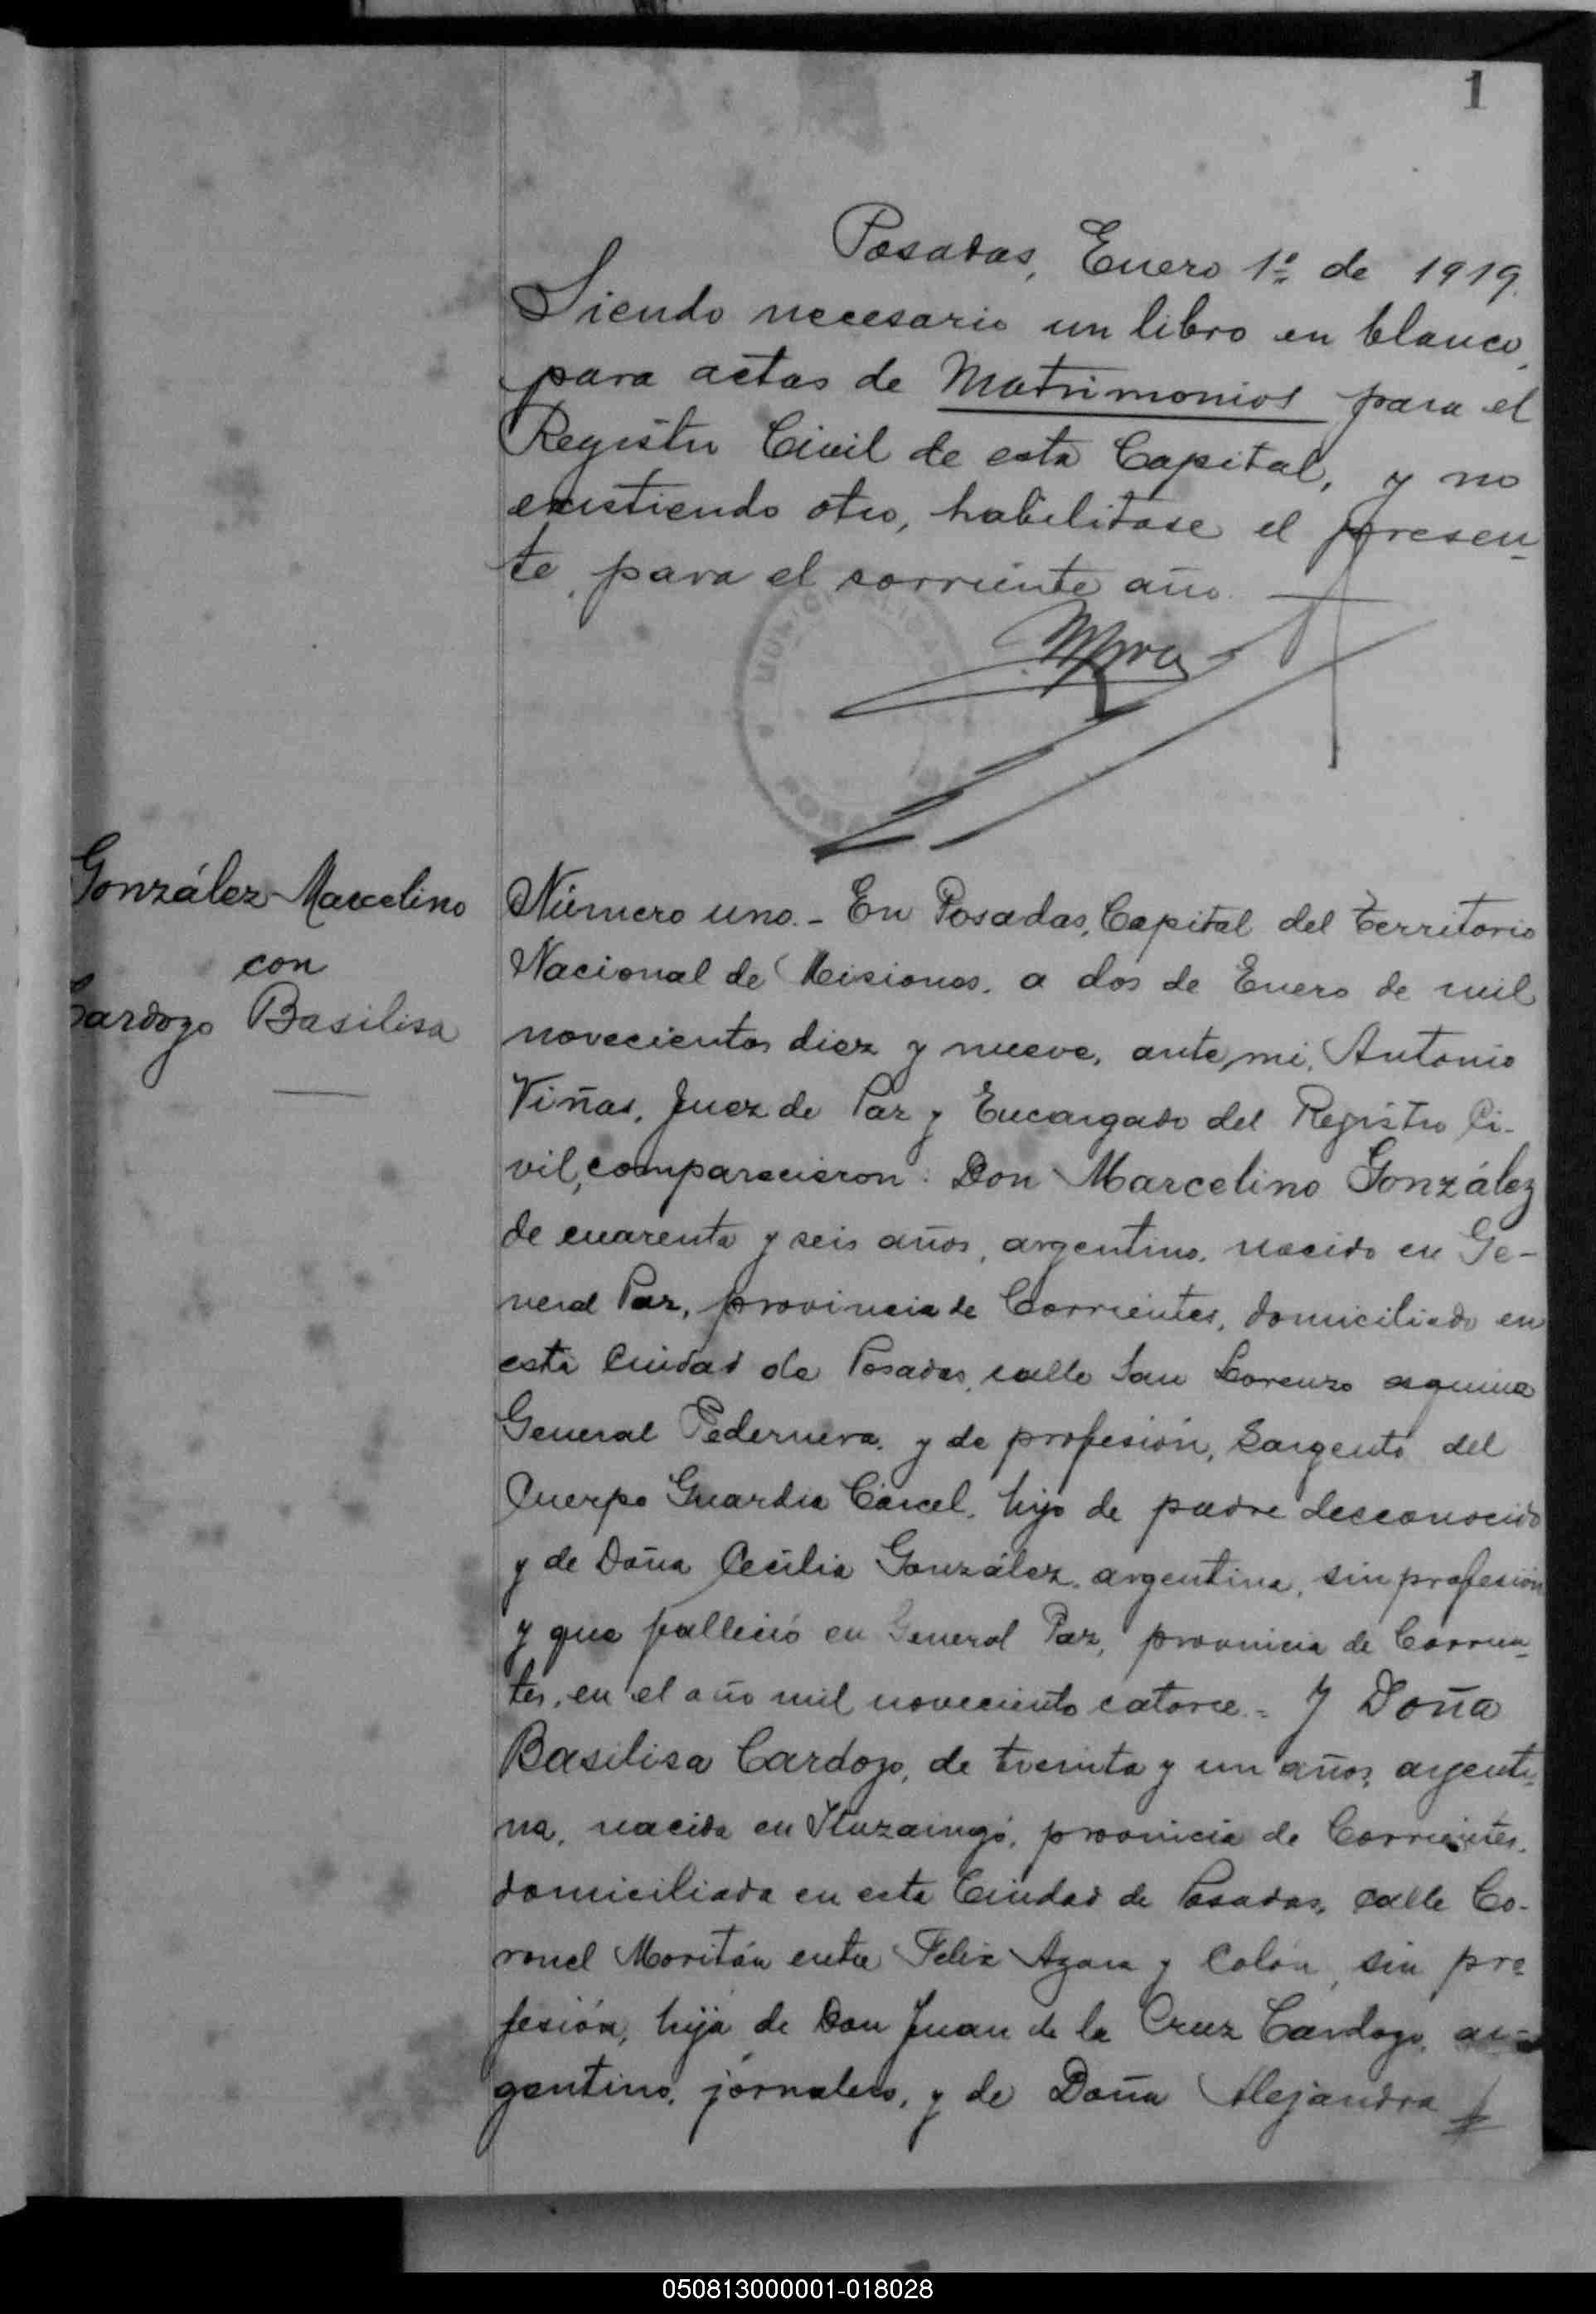 1
Posadas, Enero 1º de 1919.
Siendo necesario un libro en blanco,
para actas de Matrimonios para el
Registro Civil de esta Capital, y no
existiendo otro, habilitase el presen-
te, para el corriente año.
MUNICIPALIDAD
POSADAS
González Marcelino
con
Cardozo Basilisa
Número uno.- En Posadas, Capital del Territorio
Nacional de Misiones, a dos de Enero de mil
novecientos diez y nueve, ante mi, Antonio
Viñas, Juez de Paz y Encargado del Registro Ci-
vil, comparecieron: Don Marcelino González
de cuarenta y seis años, argentino, nacido en Ge-
neral Paz, provincia de Corrientes, domiciliado en
esta Ciudad de Posadas, calle San Lorenzo esquina
General Pedernera, y de profesión, Sargento del
Cuerpo Guardia Cárcel, hijo de padre desconocido
y de Doña Cecilia González, argentina, sin profesión
y que falleció en General Paz, provincia de Corrien-
tes, en el año mil novecientos catorce.= Y Doña
Basilisa Cardozo, de treinta y un años, argenti-
na, nacida en Ituzaingó, provincia de Corrientes,
domiciliada en esta Ciudad de Posadas, calle Co-
ronel Moritán entre Felix Azara y Colón, sin pro-
fesión, hija de Don Juan de la Cruz Cardozo, ar-
gentino, jornalero, y de Doña Alejandra
050813000001-018028